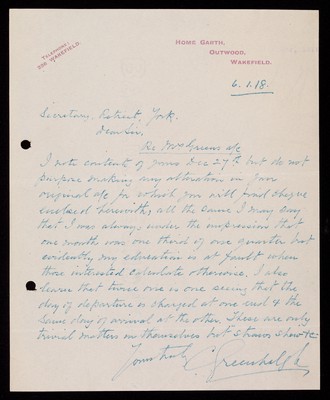 TELEPHONE
HOME GARTH,
OUTWOOD,
WAKEFIELD.
WAKEFIELD.
6.1.18.
Secretary, Retreat, York.
Dear Sir,
Re Mrs Greens a/c
I note content of yours Dec 27th but do not
purpose making any alteration in your
original a/c for which you will find cheque
enclosed herewith, all the same I may say
that I was always under the impression that
one month was one third of one quarter but
evidently my education is at fault when
those interested calculate otherwise. I also
learn that twice one is one seeing that the
day of departure is charged at one end & the
same day of arrival at the other. These are only
trivial matters in themselves but straws show &c
Yours truly
C Greenhalgh